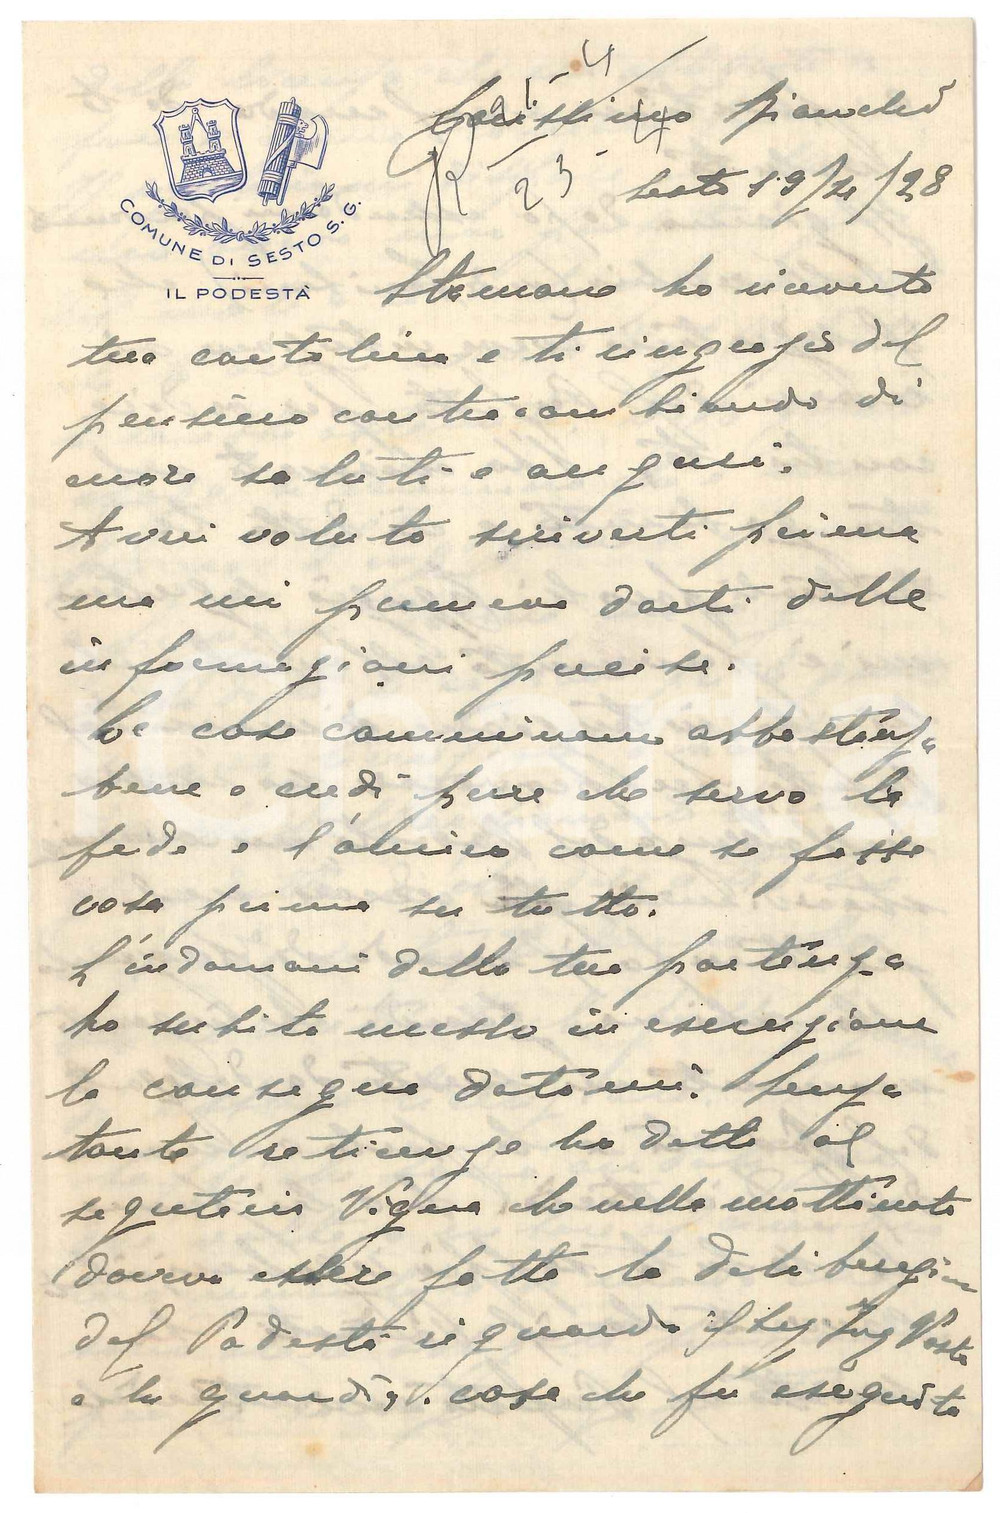 COMUNE DI SESTO S. G.
IL PODESTÀ
21-4
R 23-4
Carissimo Bianchi
Sesto 19/4/38
Stamane ho ricevuto
tua cartolina e ti ringrazio del
pensiero contracambiando di
cuore saluti e auguri.
Avrei voluto scriverti prima
ma mi premeva darti delle
informazioni precise.
Le cose camminano abbastanza
bene e credi pure che servo la
fede e l'amico come se fosse
cosa prima su tutto.
L'indomani della tua partenza
ho subito messo in esecuzione
la consegna datami. Senza
tante reticenze ho detto al
segretario Vigna che nella mattinata
doveva essere fatta la deliberazione
del Podestà riguardo il Ing
e la guardia. cosa che fu eseguita